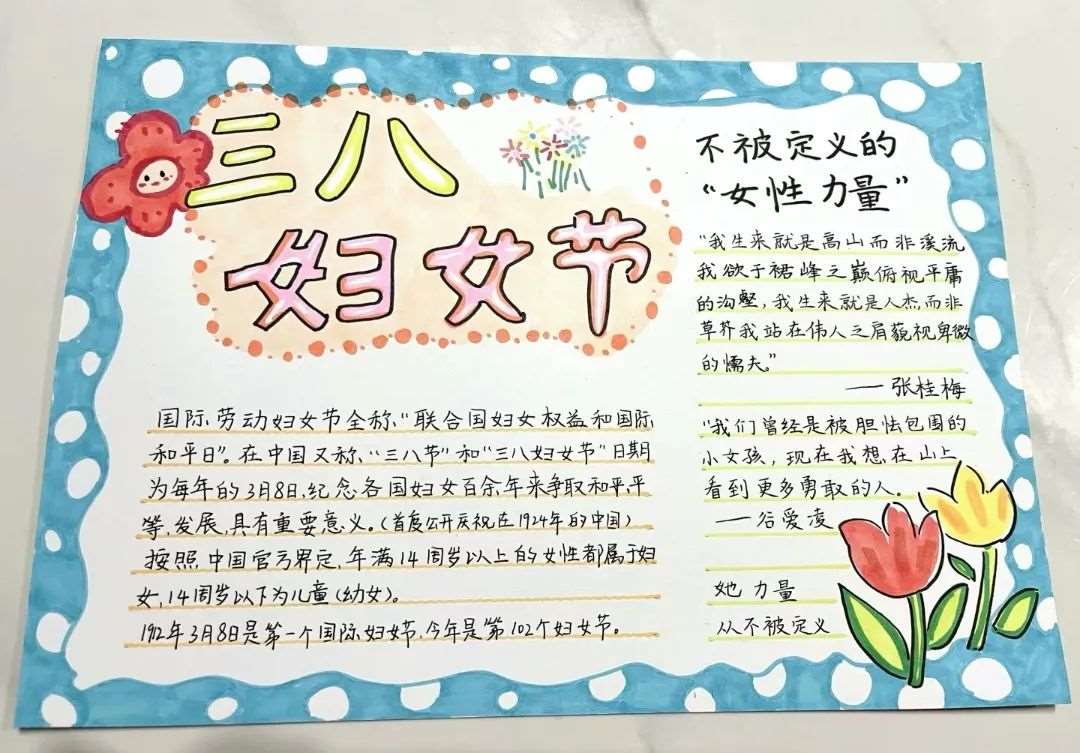 三八
妇女节
国际劳动妇女节全称,“联合国妇女权益和国际
和平日”。在中国又称,“三八节”和“三八妇女节”日期
为每年的3月8日,纪念各国妇女百余年来争取和平,平
等,发展,具有重要意义。(首度公开庆祝在1924年的中国)
按照,中国官方界定,年满14周岁以上的女性都属于妇
女,14周岁以下为儿童(幼女)。
1912年3月8日是第一个国际妇女节,今年是第102个妇女节。
不被定义的
“女性力量”
“我生来就是高山而非溪流
我欲于裙峰之巅俯视平庸
的沟壑,我生来就是人杰而非
草芥我站在伟人之肩藐视卑微
的懦夫”
——张桂梅
“我们曾经是被胆怯包围的
小女孩,现在我想在山上
看到更多勇敢的人。
——谷爱凌
她力量
从不被定义